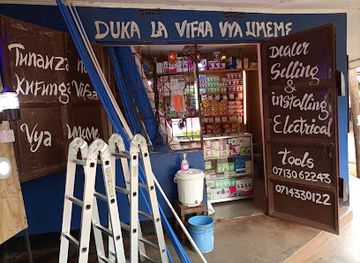 DUKA LA VIFAA VYA UMEME
Tunauza na
Kufunga Vifaa
Vya Umeme
Dealer
Selling
&
installing
Electrical
Tools
0713062243
0714330122